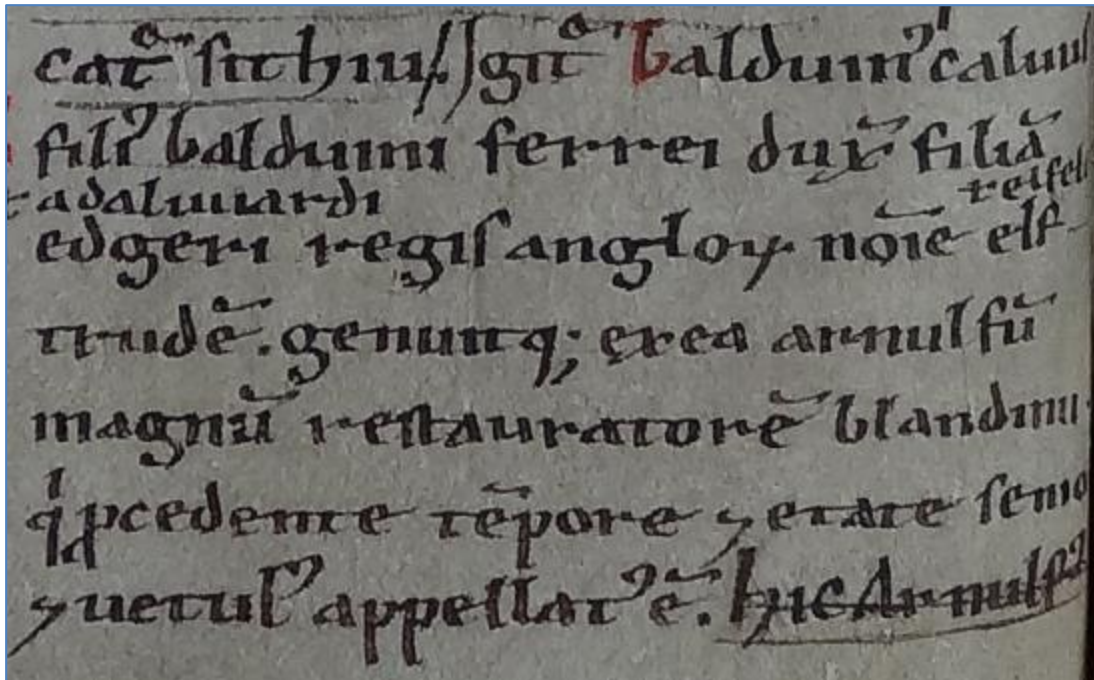 cat᷒ sithiu. Igit᷒ Balduin᷒ caluus
fili᷒ balduini ferrei dux̄ filiā
adaluuardi
edgeri regis angloꝝ noīe elf
trudē. genuitq; ex ea arnulfū
magnū restauratorē blandinii
qͥ pcedente tēpore ⁊ etate senio
⁊ uetul᷒ appellat᷒ ē. hic Arnulf᷒